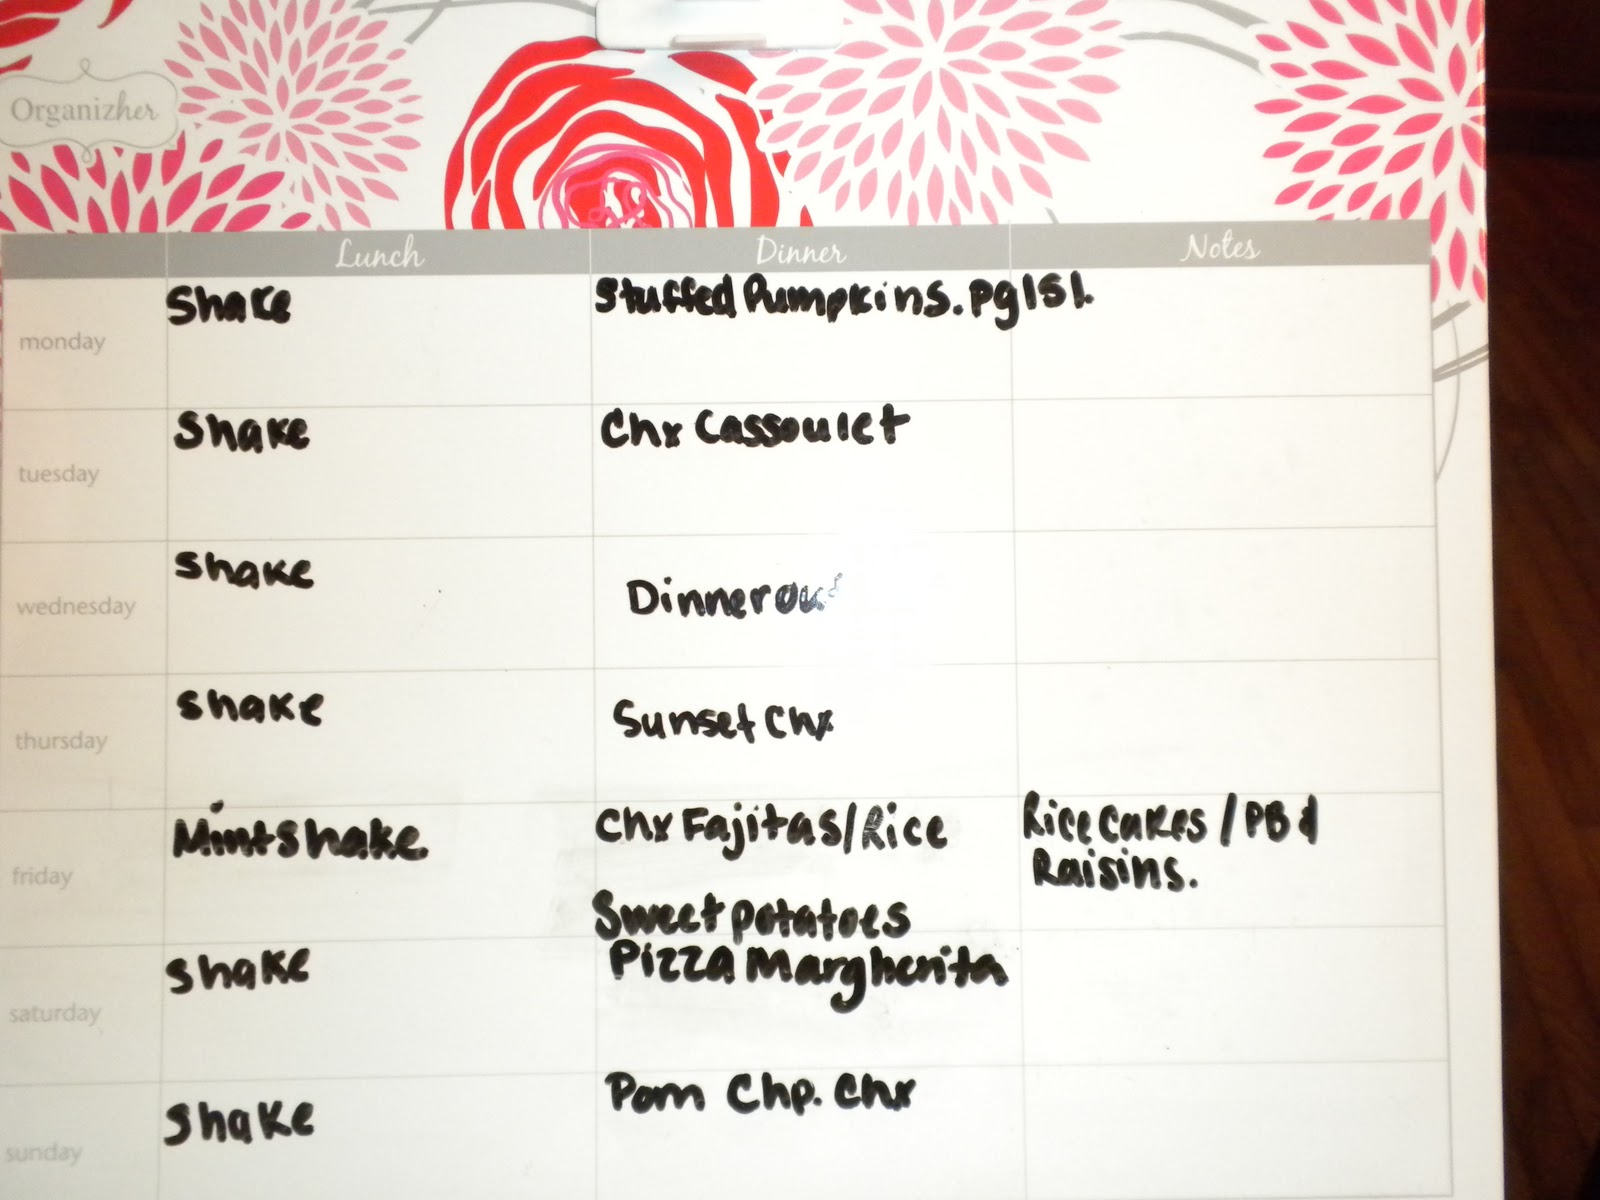 Organizher
Lunch Dinner Notes
monday Shake Stuffed Pumpkins. pg 151.
tuesday Shake Chx Cassoulet
wednesday Shake Dinner out
thursday Shake Sunset Chx
friday Mint Shake. Chx Fajitas/Rice Rice Cakes / PB &
Raisins.
Sweet potatoes
saturday Shake Pizza Margherita
sunday Shake Pom Chp. Chx